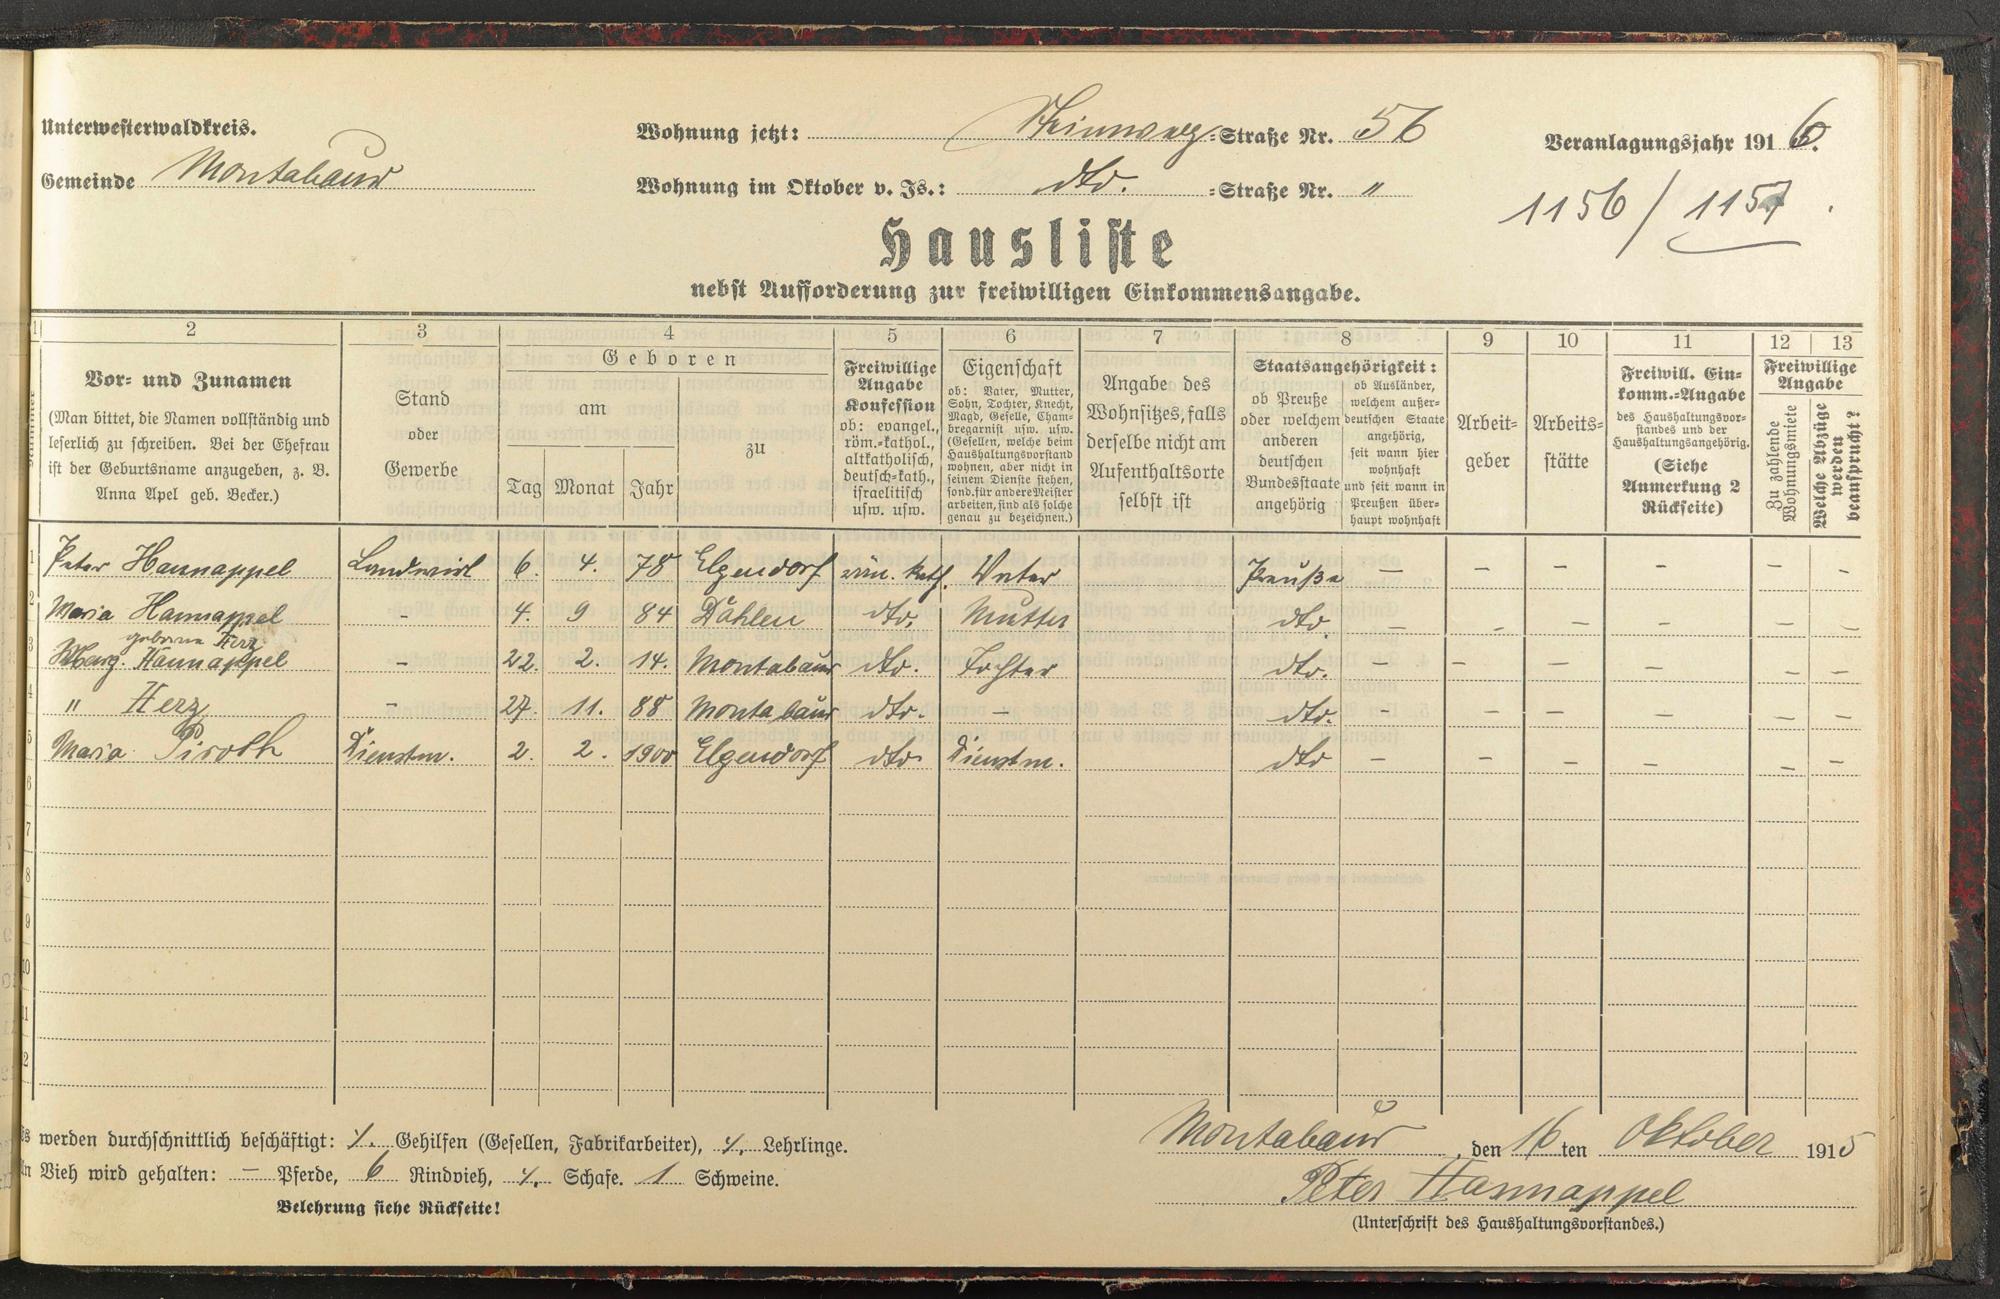 Unterwesterwaldkreis.
Gemeinde Montabaur
Wohnung jetzt: Steinweg =Straße Nr. 56
Wohnung im Oktober v. Js.: dto. =Straße Nr. "
Veranlagungsjahr 1916.
1156 / 1157.
Hausliste
nebst Aufforderung zur freiwilligen Einkommensangabe.
1 2 3 4 5 6 7 8 9 10 11 12 13
Nummer
Vor- und Zunamen
(Man bittet, die Namen vollständig und
leserlich zu schreiben. Bei der Ehefrau
ist der Geburtsname anzugeben, z. B.
Anna Apel geb. Becker.)
Stand
oder
Gewerbe
Geboren
am
Tag Monat Jahr
zu
Freiwillige
Angabe
Konfession
ob: evangel.,
röm.=kathol.,
altkatholisch,
deutsch=kath.,
israelitisch
usw. usw.
Eigenschaft
ob: Vater, Mutter,
Sohn, Tochter, Knecht,
Magd, Geselle, Cham-
bregarnist usw. usw.
(Gesellen, welche beim
Haushaltungsvorstand
wohnen, aber nicht in
seinem Dienste stehen,
sond. für andere Meister
arbeiten, sind als solche
genau zu bezeichnen.)
Angabe des
Wohnsitzes, falls
derselbe nicht am
Aufenthaltsorte
selbst ist
Staatsangehörigkeit:
ob Preuße
oder welchem
anderen
deutschen
Bundesstaate
angehörig
ob Ausländer,
welchem außer-
deutschen Staate
angehörig,
seit wann hier
wohnhaft
und seit wann in
Preußen über-
haupt wohnhaft
Arbeit=
geber
Arbeits=
stätte
Freiwill. Ein-
komm.=Angabe
des Haushaltungsvor-
standes und der
Haushaltungsangehörig.
(Siehe
Anmerkung 2
Rückseite)
Freiwillige
Angabe
Zu zahlende
Wohnungsmiete
Welche Abzüge
werden
beansprucht?
1 Peter Hannappel Landwirt 6. 4. 78 Elgendorf röm. kath. Vater Preuße – – – – – –
2 Maria Hannappel – 4. 9 84 Dahlen dto. Mutter dto. – – – – – –
geborene Herz
3 Marg. Hannappel – 22. 2. 14. Montabaur dto. Tochter dto. – – – – – –
4 " Herz – 27. 11. 88 Montabaur dto. – dto. – – – – – –
5 Maria Piroth Dienstm. 2. 2. 1900 Elgendorf dto. Dienstm. dto – – – – – –
6
7
8
9
10
11
12
Es werden durchschnittlich beschäftigt: ./. Gehilfen (Gesellen, Fabrikarbeiter), ./. Lehrlinge.
An Vieh wird gehalten: – Pferde, 6 Rindvieh, ./. Schafe. 1 Schweine.
Belehrung siehe Rückseite!
Montabaur, den 16ten Oktober 1915
Peter Hannappel
(Unterschrift des Haushaltungsvorstandes.)